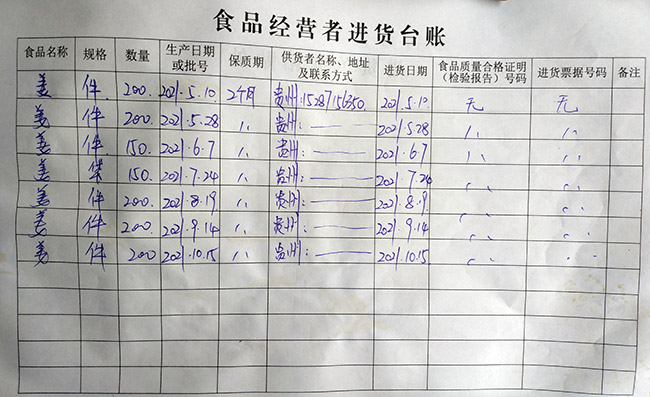 食品经营者进货台账
食品名称 规格 数量 生产日期或批号 保质期 供货者名称、地址及联系方式 进货日期 食品质量合格证明（检验报告）号码 进货票据号码 备注
姜 件 200. 2021.5.10 2个月 贵州:15287156350 2021.5.10 无 无
姜 件 200. 2021.5.28 〃 贵州: —— 2021.5.28 〃 〃
姜 件 150. 2021.6.7 〃 贵州: —— 2021.6.7 〃 〃
姜 件 150. 2021.7.24 〃 贵州: —— 2021.7.24 〃 〃
姜 件 200. 2021.8.19 〃 贵州: —— 2021.8.19 〃 〃
姜 件 200. 2021.9.14 〃 贵州: —— 2021.9.14 〃 〃
姜 件 200 2021.10.15 〃 贵州: —— 2021.10.15 〃 〃